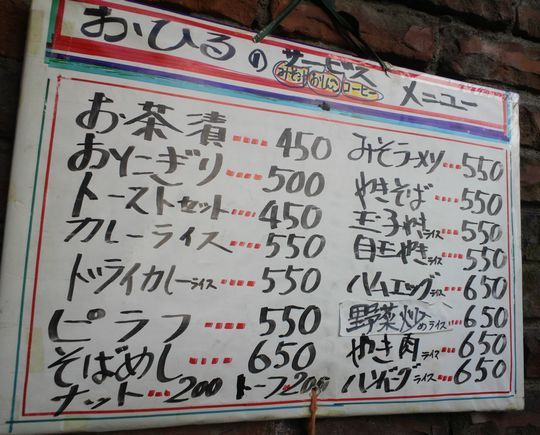 おひるの サービス メニュー
みそ汁 おしんこ コーヒー
お茶漬 450
おにぎり 500
トーストセット 450
カレーライス 550
ドライカレーライス 550
ピラフ 550
そばめし 650
ナットー 200 トーフ 200
みそラーメン 550
やきそば 550
玉子やきライス 550
目玉やきライス 550
ハムエッグライス 650
野菜炒めライス 650
やき肉ライス 650
ハンバーグライス 650